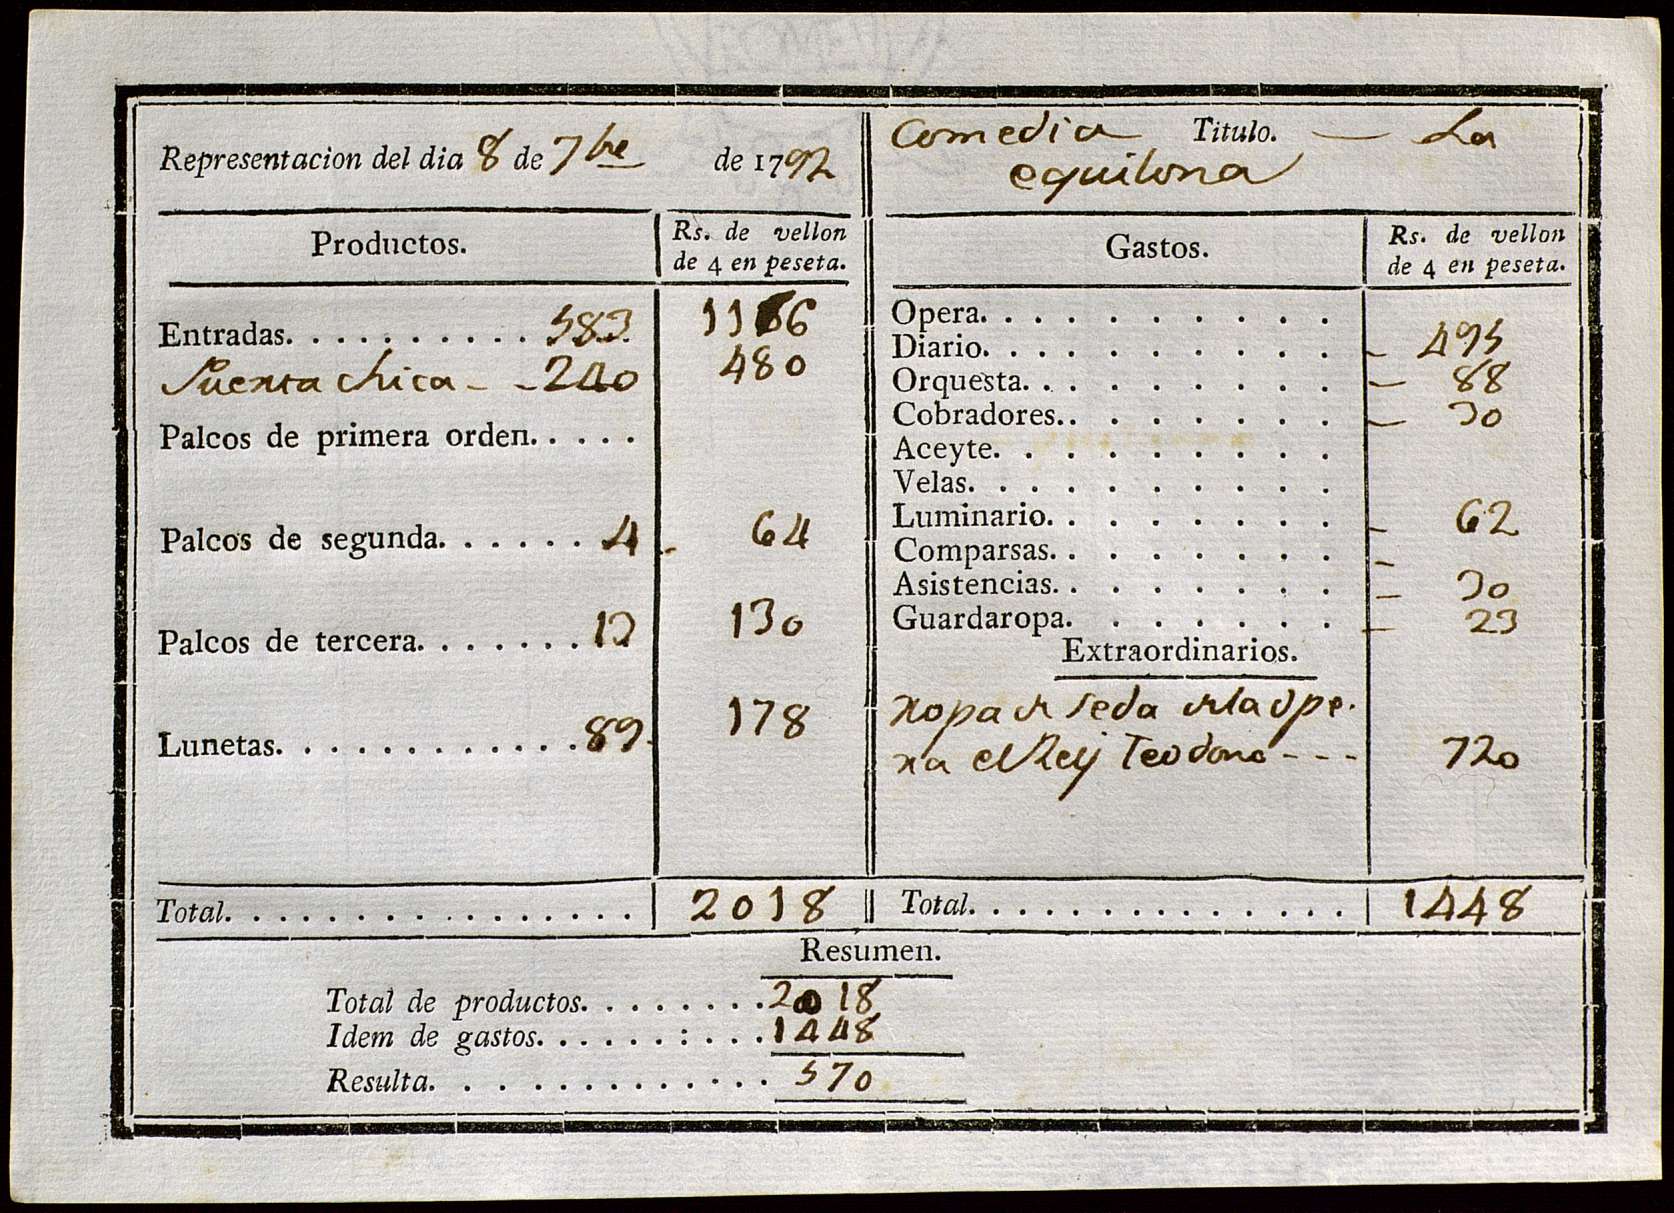 Representacion del dia 8 de 7bre de 1792
Comedia Titulo. — La
equilona
Productos. Rs. de vellon
de 4 en peseta.
Gastos. Rs. de vellon
de 4 en peseta.
Entradas. . . . . . . . . . . 583 1166
Puerta chica - - 240 480
Palcos de primera orden. . . . .
Palcos de segunda. . . . . . 4 - 64
Palcos de tercera. . . . . . . 13 130
Lunetas. . . . . . . . . . . . . 89. 178
Opera. . . . . . . . . .
Diario. . . . . . . . . . - 495
Orquesta. . . . . . . . . — 88
Cobradores. . . . . . . . — 30
Aceyte. . . . . . . . . .
Velas. . . . . . . . . .
Luminario. . . . . . . . - 62
Comparsas. . . . . . . . -
Asistencias. . . . . . . . — 30
Guardaropa. . . . . . . — 23
Extraordinarios.
ropa de seda dela ope-
ra el Rey Teodoro - - - 720
Total. . . . . . . . . . . . . . . . . 2018
Total. . . . . . . . . . . . . . 1448
Resumen.
Total de productos. . . . . . . . 2018
Idem de gastos. . . . . . : . . . 1448
Resulta. . . . . . . . . . . . . 570